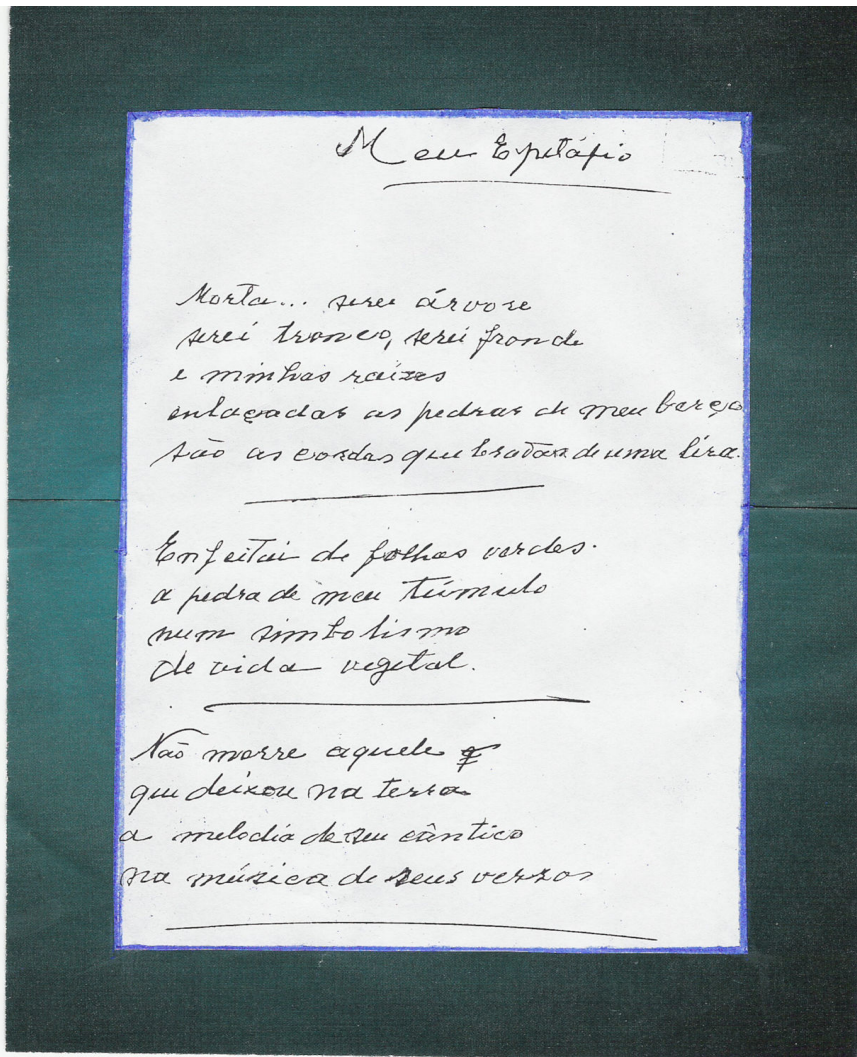 Meu Epitáfio
Morta... serei árvore
serei tronco, serei fronde
e minhas raízes
enlaçadas as pedras de meu berço
são as cordas que brotam de uma lira.
Enfeitai de folhas verdes.
a pedra de meu túmulo
num simbolismo
de vida vegetal.
Não morre aquele
que deixou na terra
a melodia de seu cântico
na música de seus versos